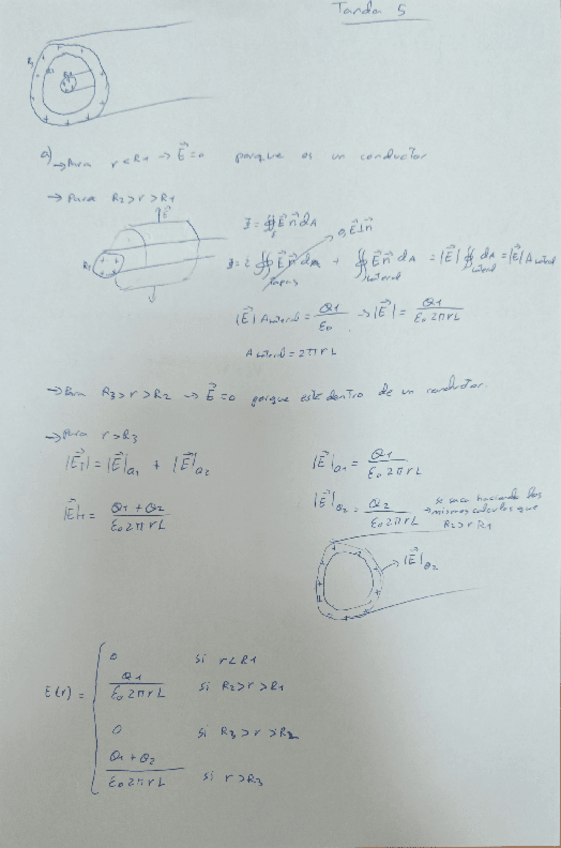 Tanda 5
R3
R2
R1
a) → Para r < R1 → E⃗ = 0 porque es un conductor
→ Para R2 > r > R1
E⃗
R1
Φ = ∯ E⃗ n⃗ dA
0, E⃗ ⊥ n⃗
Φ = 2 ∯ E⃗ n⃗ dA + ∯ E⃗ n⃗ dA = |E⃗| ∯ dA = |E⃗| A lateral
tapas lateral lateral
|E⃗| A lateral = Q1/ε0 → |E⃗| = Q1/(ε0 2πrL)
A lateral = 2πrL
→ Para R3 > r > R2 → E⃗ = 0 porque está dentro de un conductor.
→ Para r > R3
|E⃗T| = |E⃗|Q1 + |E⃗|Q2
|E⃗|T = (Q1 + Q2)/(ε0 2πrL)
|E⃗|Q1 = Q1/(ε0 2πrL)
|E⃗|Q2 = Q2/(ε0 2πrL) → se saca haciendo los
mismos calculos que
R2 > r R1
→ |E⃗|Q2
E(r) =
0 si r < R1
Q1/(ε0 2πrL) si R2 > r > R1
0 si R3 > r > R2
(Q1 + Q2)/(ε0 2πrL) si r > R3